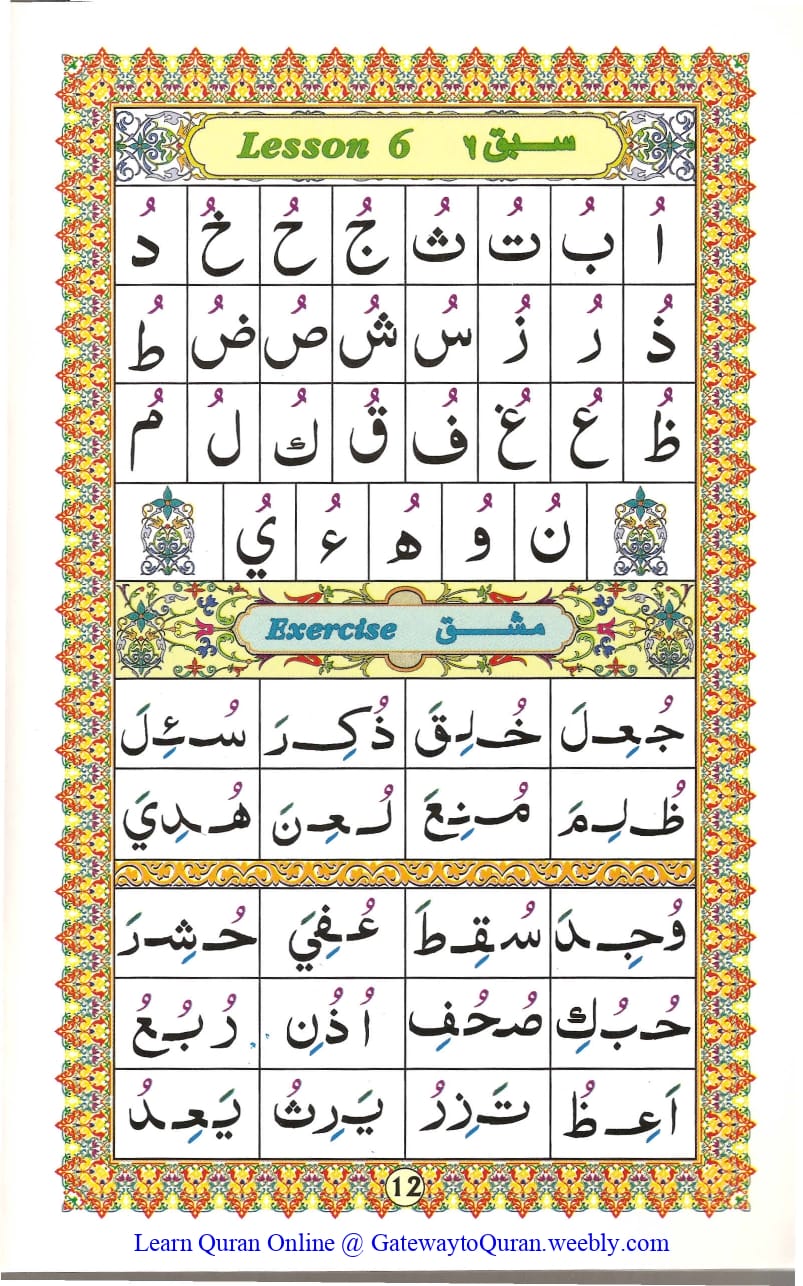 Lesson 6 سبق ٦
اُ بُ تُ ثُ جُ حُ خُ دُ
ذُ رُ زُ سُ شُ صُ ضُ طُ
ظُ عُ غُ فُ قُ كُ لُ مُ
نُ وُ هُ ءُ يُ
Exercise مشق
جُعِلَ خُلِقَ ذُكِرَ سُئِلَ
ظُلِمَ مُنِعَ لُعِنَ هُدِيَ
وُجِدَ سُقِطَ عُفِيَ حُشِرَ
حُبُكِ صُحُفِ اُذُنِ رُبُعُ
اَعِظُ تَزِرُ يَرِثُ يَعِدُ
12
Learn Quran Online @ GatewaytoQuran.weebly.com